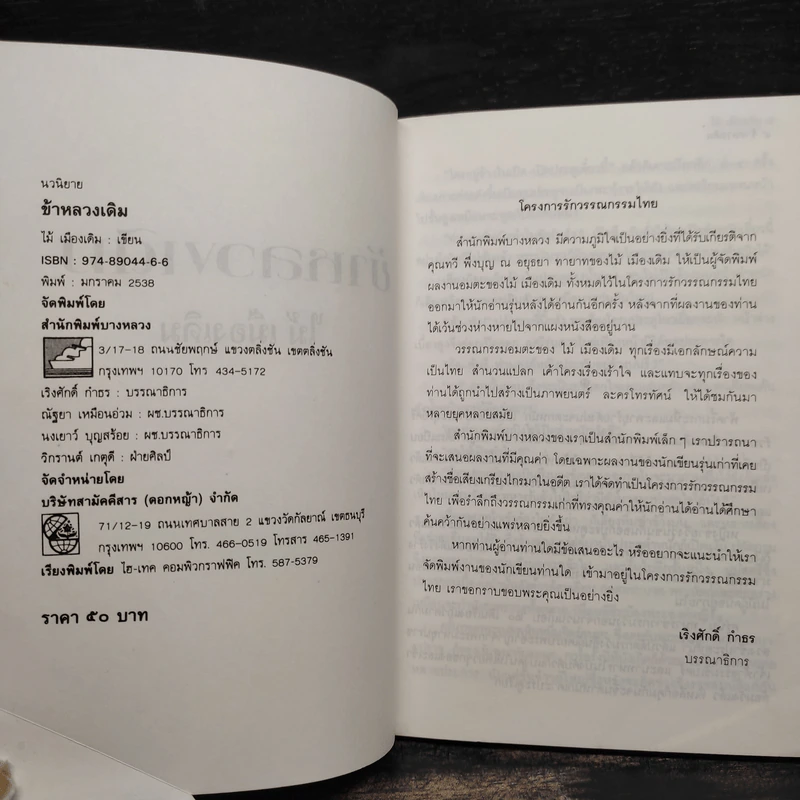 นวนิยาย
ข้าหลวงเดิม
ไม้ เมืองเดิม : เขียน
ISBN : 974-89044-6-6
พิมพ์ : มกราคม 2538
จัดพิมพ์โดย
สำนักพิมพ์บางหลวง
3/17-18 ถนนชัยพฤกษ์ แขวงตลิ่งชัน เขตตลิ่งชัน
กรุงเทพฯ 10170 โทร 434-5172
เริงศักดิ์ กำธร : บรรณาธิการ
ณัฐยา เหมือนอ่วม : ผช.บรรณาธิการ
นงเยาว์ บุญสร้อย : ผช.บรรณาธิการ
วิกรานต์ เกตุดี : ฝ่ายศิลป์
จัดจำหน่ายโดย
บริษัทสามัคคีสาร (ดอกหญ้า) จำกัด
71/12-19 ถนนเทศบาลสาย 2 แขวงวัดกัลยาณ์ เขตธนบุรี
กรุงเทพฯ 10600 โทร. 466-0519 โทรสาร 465-1391
เรียงพิมพ์โดย ไฮ-เทค คอมพิวกราฟฟิค โทร. 587-5379
ราคา ๕๐ บาท
โครงการรักวรรณกรรมไทย
สำนักพิมพ์บางหลวง มีความภูมิใจเป็นอย่างยิ่งที่ได้รับเกียรติจาก
คุณทวี พึ่งบุญ ณ อยุธยา ทายาทของไม้ เมืองเดิม ให้เป็นผู้จัดพิมพ์
ผลงานอมตะของไม้ เมืองเดิม ทั้งหมดไว้ในโครงการรักวรรณกรรมไทย
ออกมาให้นักอ่านรุ่นหลังได้อ่านกันอีกครั้ง หลังจากที่ผลงานของท่าน
ได้เว้นช่วงห่างหายไปจากแผงหนังสืออยู่นาน
วรรณกรรมอมตะของ ไม้ เมืองเดิม ทุกเรื่องมีเอกลักษณ์ความ
เป็นไทย สำนวนแปลก เค้าโครงเรื่องเร้าใจ และแทบจะทุกเรื่องของ
ท่านได้ถูกนำไปสร้างเป็นภาพยนตร์ ละครโทรทัศน์ ให้ได้ชมกันมา
หลายยุคหลายสมัย
สำนักพิมพ์บางหลวงของเราเป็นสำนักพิมพ์เล็ก ๆ เราปรารถนา
ที่จะเสนอผลงานที่มีคุณค่า โดยเฉพาะผลงานของนักเขียนรุ่นเก่าที่เคย
สร้างชื่อเสียงเกรียงไกรมาในอดีต เราได้จัดทำเป็นโครงการรักวรรณกรรม
ไทย เพื่อรำลึกถึงวรรณกรรมเก่าที่ทรงคุณค่าให้นักอ่านได้อ่านได้ศึกษา
ค้นคว้ากันอย่างแพร่หลายยิ่งขึ้น
หากท่านผู้อ่านท่านใดมีข้อเสนออะไร หรืออยากจะแนะนำให้เรา
จัดพิมพ์งานของนักเขียนท่านใด เข้ามาอยู่ในโครงการรักวรรณกรรม
ไทย เราขอกราบขอบพระคุณเป็นอย่างยิ่ง
เริงศักดิ์ กำธร
บรรณาธิการ